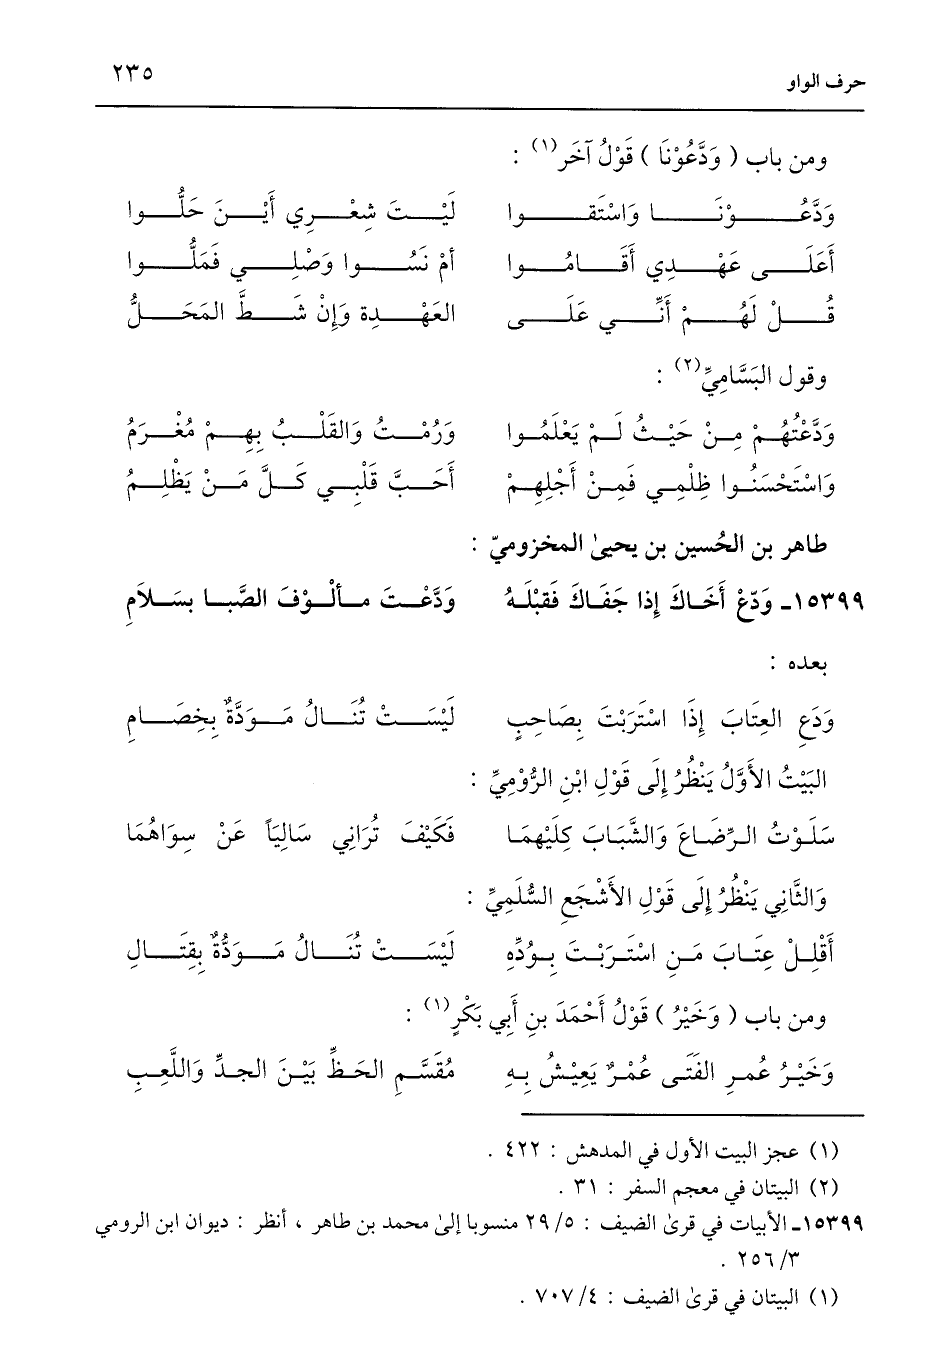 حرف الواو ٢٣٥
ومن باب ( وَدَّعُوْنَا ) قَوْلُ آخَر(١) :
وَدَّعُوْنَا وَاسْتَقَوا لَيْتَ شِعْرِي أَيْنَ حَلُّوا
أَعَلَى عَهْدِي أَقَامُوا أمْ نَسُوا وَصْلِي فَمَلُّوا
قُلْ لَهُمْ أَنِّي عَلَى العَهْدِة وَإِنْ شَطَّ المَحَلُّ
وقول البَسَّامِيِّ(٢) :
وَدَّعْتُهُمْ مِنْ حَيْثُ لَمْ يَعْلَمُوا وَرُمْتُ وَالقَلْبُ بِهِمْ مُغْرَمُ
وَاسْتَحْسَنُوا ظِلْمِي فَمِنْ أَجْلِهِمْ أَحَبَّ قَلْبِي كَلَّ مَنْ يَظْلِمُ
طاهر بن الحُسين بن يحيىٰ المخزوميّ :
١٥٣٩٩ـ وَدِّعْ أَخَاكَ إِذا جَفَاكَ فَقَبْلَهُ وَدَّعْتَ مألُوْفَ الصَّبا بسَلاَمِ
بعده :
وَدَعِ العِتَابَ إِذَا اسْتَرَبْتَ بِصَاحِبٍ لَيْسَتْ تُنَالُ مَوَدَّةٌ بِخِصَامِ
البَيْتُ الأَوَّلُ يَنْظُرُ إِلَى قَوْلِ ابْنِ الرُّوْمِيِّ :
سَلَوْتُ الرِّضَاعَ وَالشَّبَابَ كِلَيْهِمَا فَكَيْفَ تُرَانِي سَالِيَاً عَنْ سِوَاهُمَا
وَالثَّانِي يَنْظُرُ إِلَى قَوْلِ الأَشْجَعِ السُّلَمِيِّ :
أَقْلِلْ عِتَابَ مَنِ اسْتَرَبْتَ بِوُدِّهِ لَيْسَتْ تُنَالُ مَوَدُّةٌ بِقِتَالِ
ومن باب ( وَخَيْرُ ) قَوْلُ أَحْمَدَ بنِ أَبِي بَكْرٍ(١) :
وَخَيْرُ عُمرِ الفَتَى عُمْرٌ يَعِيْشُ بِهِ مُقَسَّمِ الحَظِّ بَيْنَ الجدِّ وَاللَّعِبِ
(١) عجز البيت الأول في المدهش : ٤٢٢ .
(٢) البيتان في معجم السفر : ٣١ .
١٥٣٩٩ـ الأبيات في قرىٰ الضيف : ٥/ ٢٩ منسوبا إلىٰ محمد بن طاهر ، أنظر : ديوان ابن الرومي
٣/ ٢٥٦ .
(١) البيتان في قرىٰ الضيف : ٤/ ٧٠٧ .